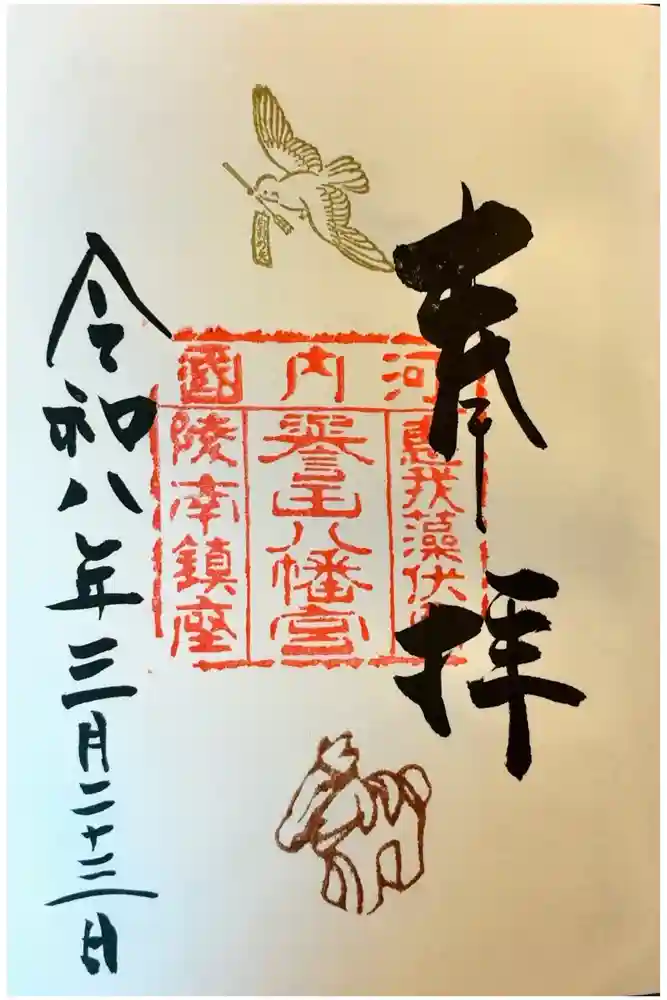 奉拝
河内國
惠我藻伏
誉田八幡宮
陵南鎮座
令和八年三月二十三日